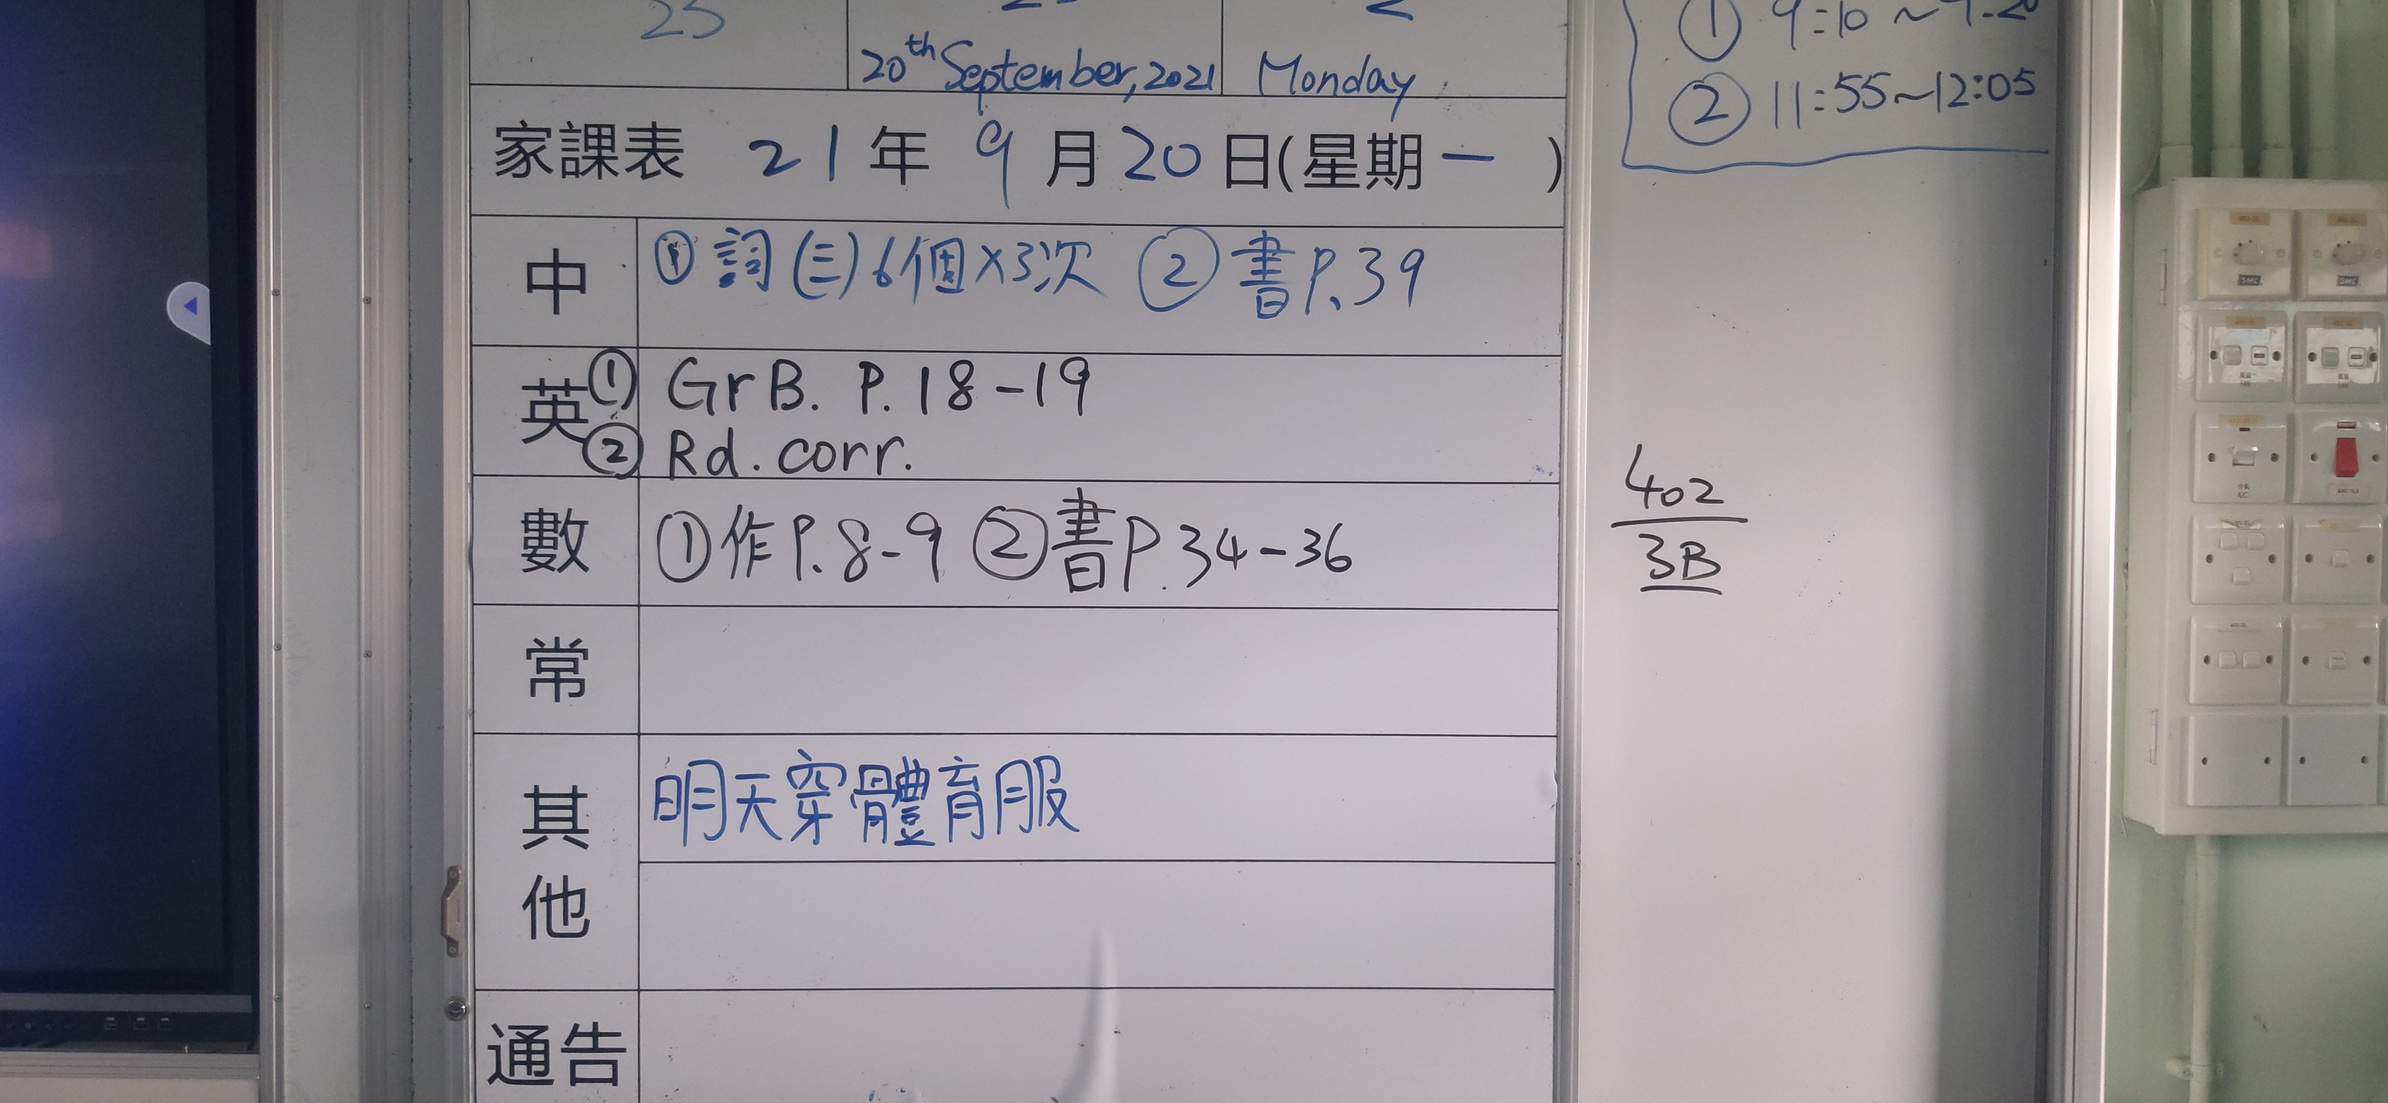 25
20th September, 2021 Monday
家課表 21年9月20日(星期一)
中 ①詞(三)6個×3次 ②書P.39
英 ① GrB. P.18-19
② Rd. corr.
數 ①作P.8-9 ②書P.34-36
常
其他 明天穿體育服
通告
① 9:10~9:20
② 11:55~12:05
402
3B